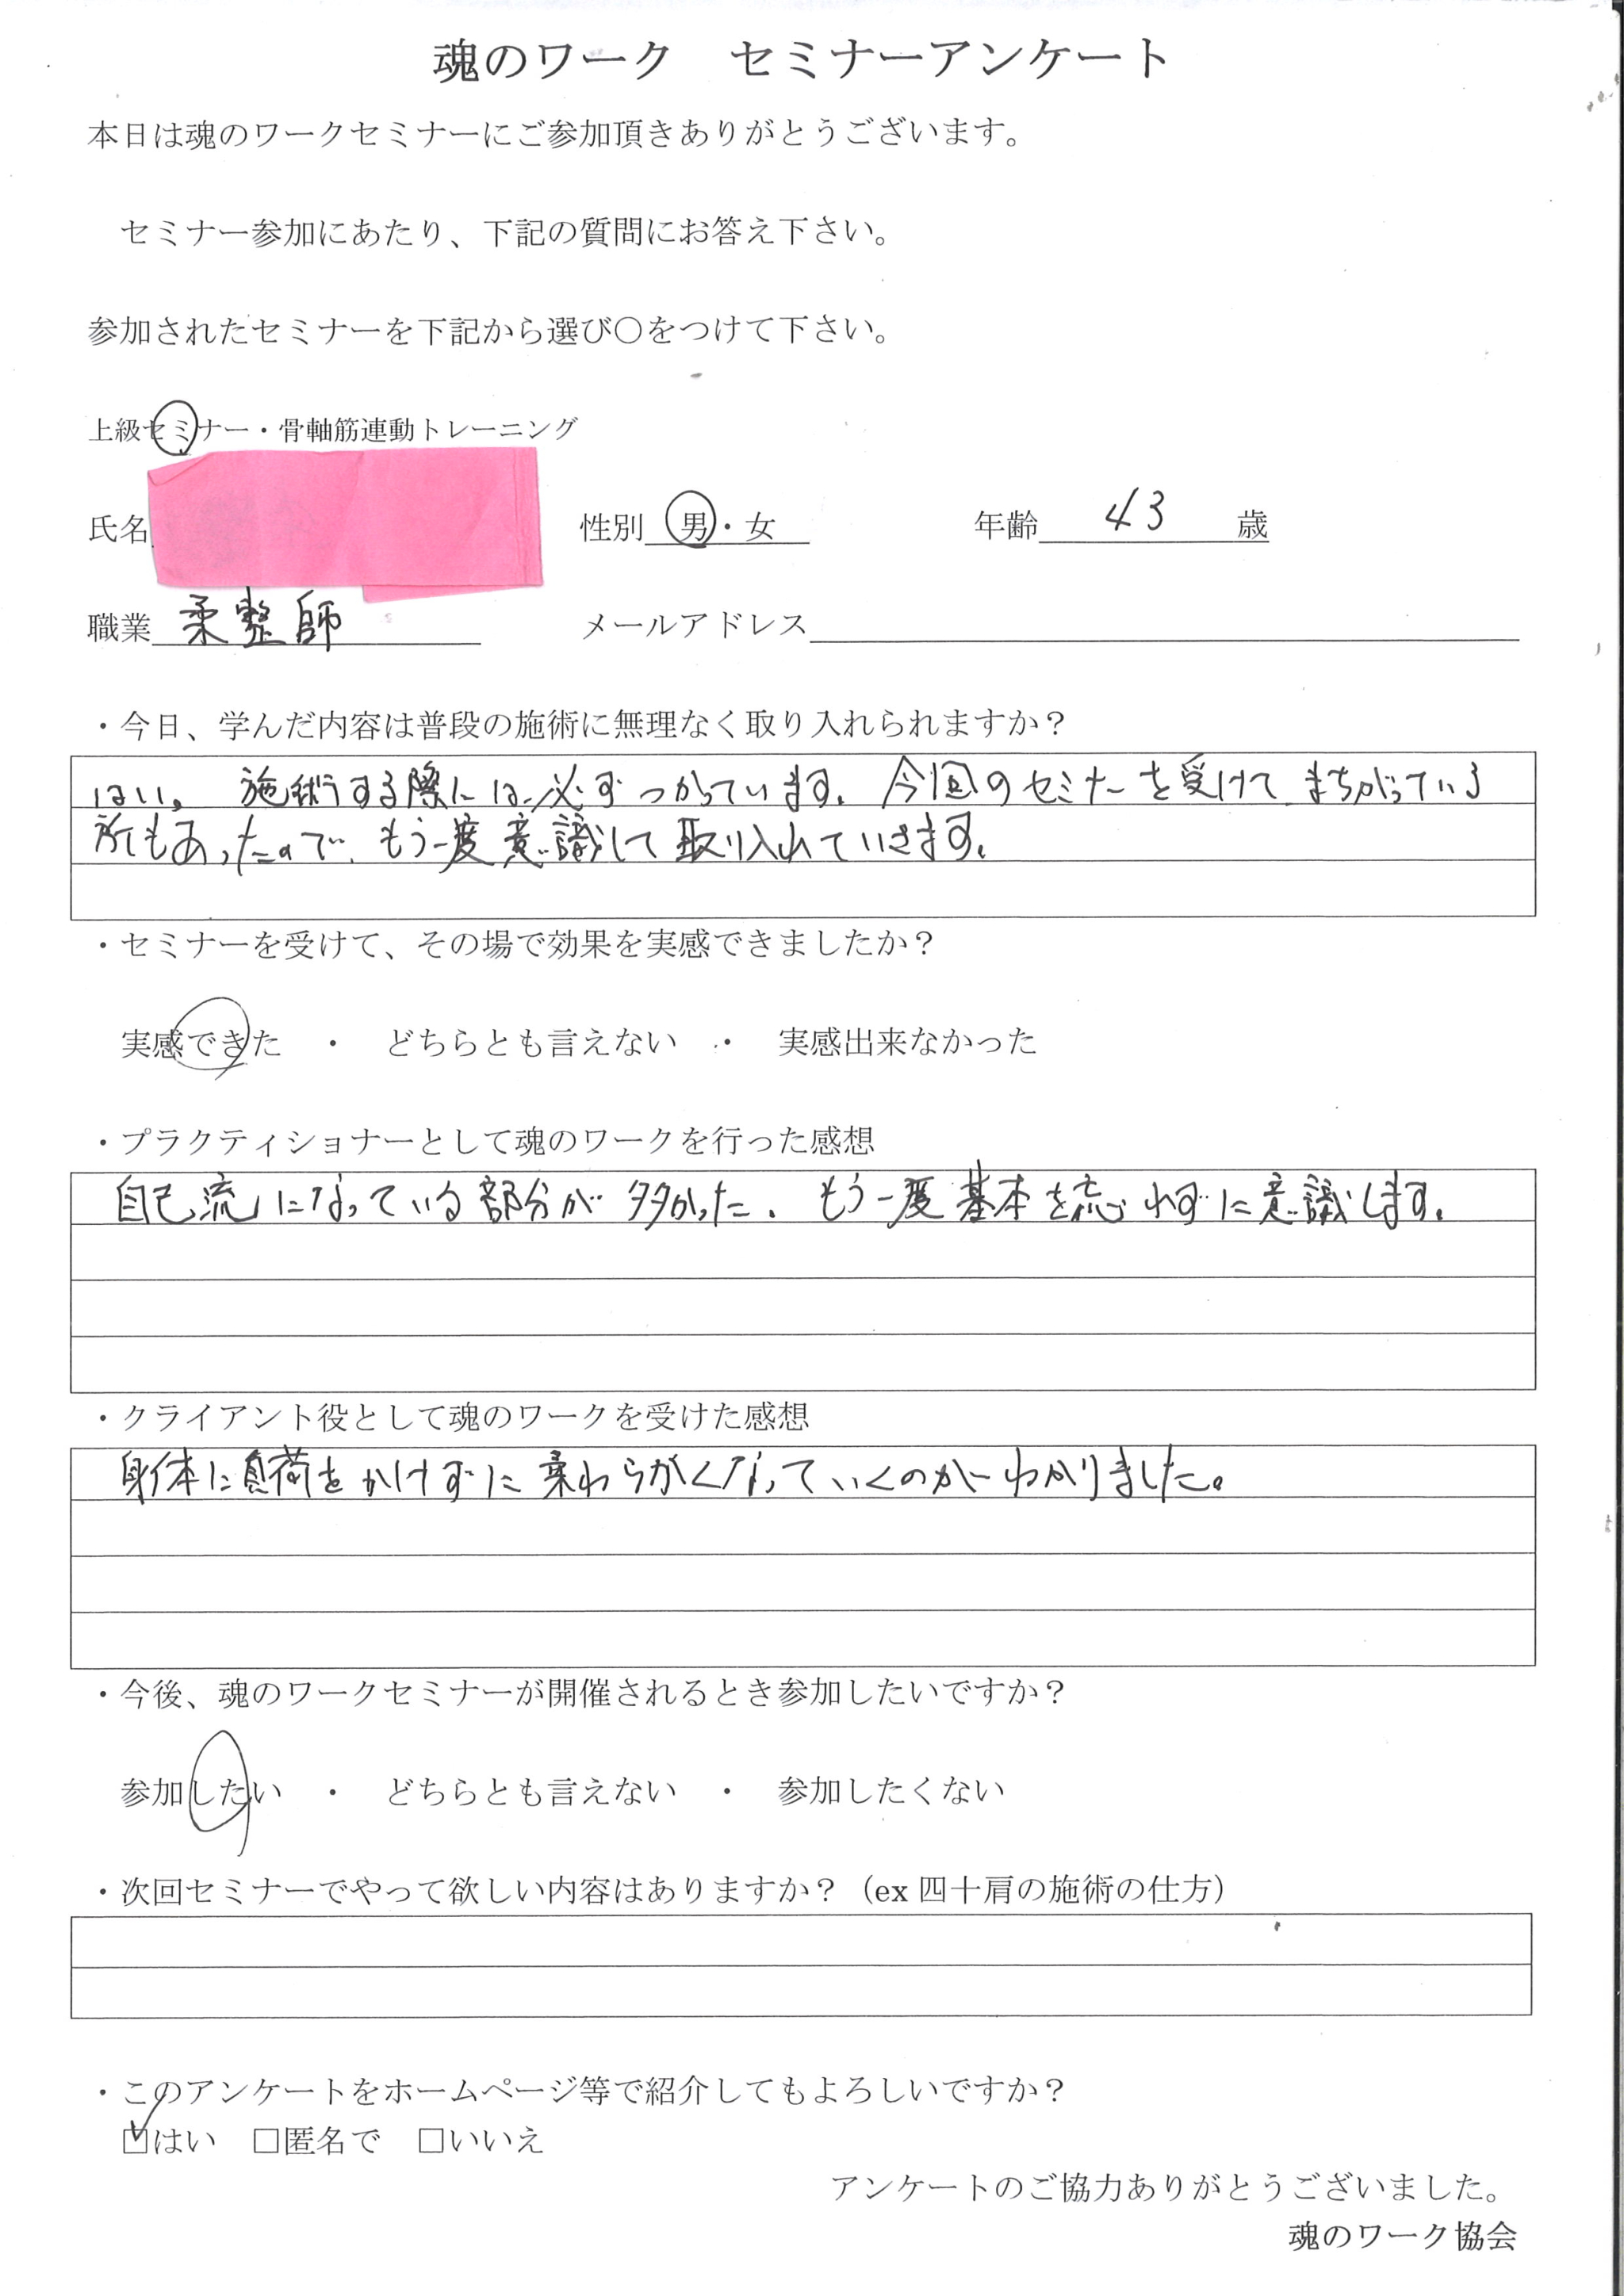 魂のワーク　セミナーアンケート
本日は魂のワークセミナーにご参加頂きありがとうございます。
セミナー参加にあたり、下記の質問にお答え下さい。
参加されたセミナーを下記から選び〇をつけて下さい。
上級セミナー・骨軸筋連動トレーニング
氏名　性別 男・女　年齢 43 歳
職業 柔整師　メールアドレス
・今日、学んだ内容は普段の施術に無理なく取り入れられますか？
はい。施術する際には必ずつかっています。今回のセミナーを受けてまちがっている
所もあったので、もう一度意識して取り入れていきます。
・セミナーを受けて、その場で効果を実感できましたか？
実感できた　・　どちらとも言えない　・　実感出来なかった
・プラクティショナーとして魂のワークを行った感想
自己流になっている部分が多かった。もう一度基本を忘れずに意識します。
・クライアント役として魂のワークを受けた感想
身体に負荷をかけずに柔わらがくなっていくのがわかりました。
・今後、魂のワークセミナーが開催されるとき参加したいですか？
参加したい　・　どちらとも言えない　・　参加したくない
・次回セミナーでやって欲しい内容はありますか？（ex 四十肩の施術の仕方）
・このアンケートをホームページ等で紹介してもよろしいですか？
☑はい　□匿名で　□いいえ
アンケートのご協力ありがとうございました。
魂のワーク協会